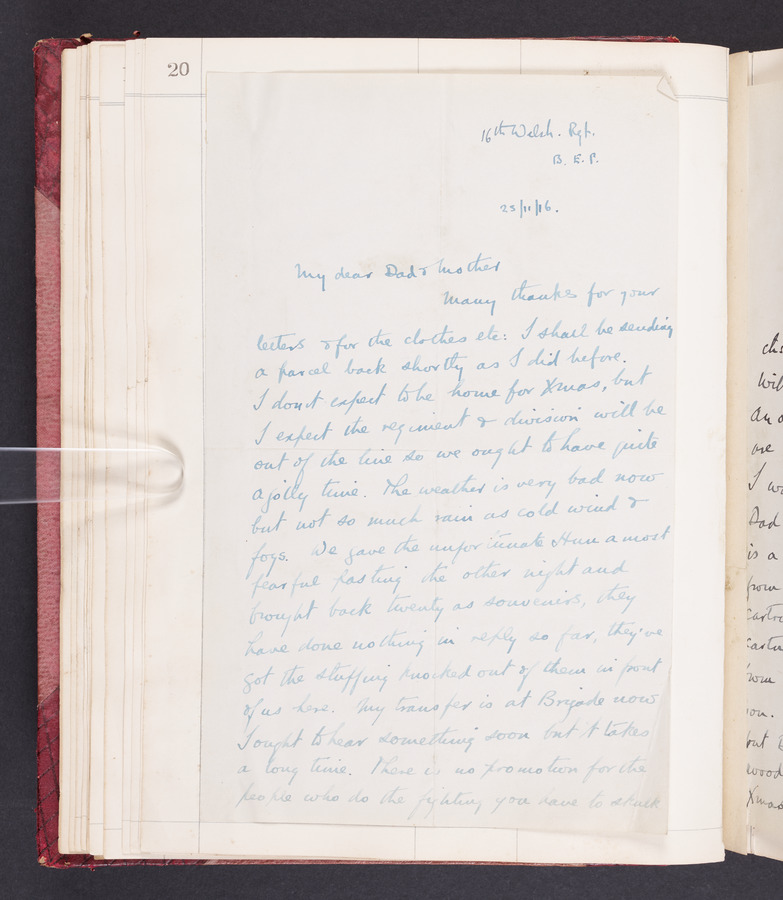 20
16th Welsh. Rgt.
B. E. F.
25/11/16.
My dear Dad & Mother
Many thanks for your
letters & for the clothes etc: I shall be sending
a parcel back shortly as I did before.
I don't expect to be home for Xmas, but
I expect the regiment & division will be
out of the line so we ought to have quite
a jolly time. The weather is very bad now
but not so much rain as cold wind &
fogs. We gave the unfortunate Hun a most
fearful pasting the other night and
brought back twenty as souvenirs, they
have done nothing in reply so far, they've
got the stuffing knocked out of them in front
of us here. My transfer is at Brigade now
I ought to hear something soon but it takes
a long time. There is no promotion for the
people who do the fighting you have to skulk
Will
are
I
Dad
is a
from
Xmas